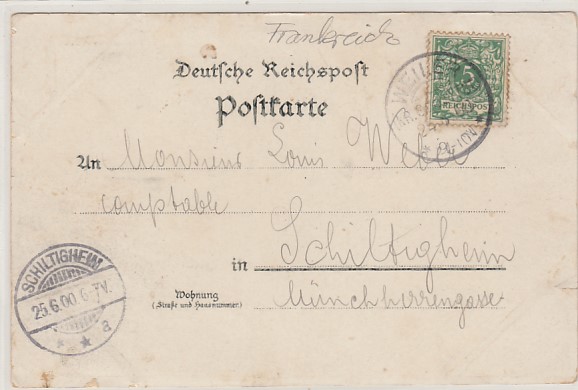 Frankreich
Deutsche Reichspost
Postkarte
5
REICHSPOST
WEILER
An Monsieur Louis Weber
comptable
Schiltigheim
in
Münchherrengasse
Wohnung
(Straße und Hausnummer)
SCHILTIGHEIM
25.6.00.6-7V.
* * a